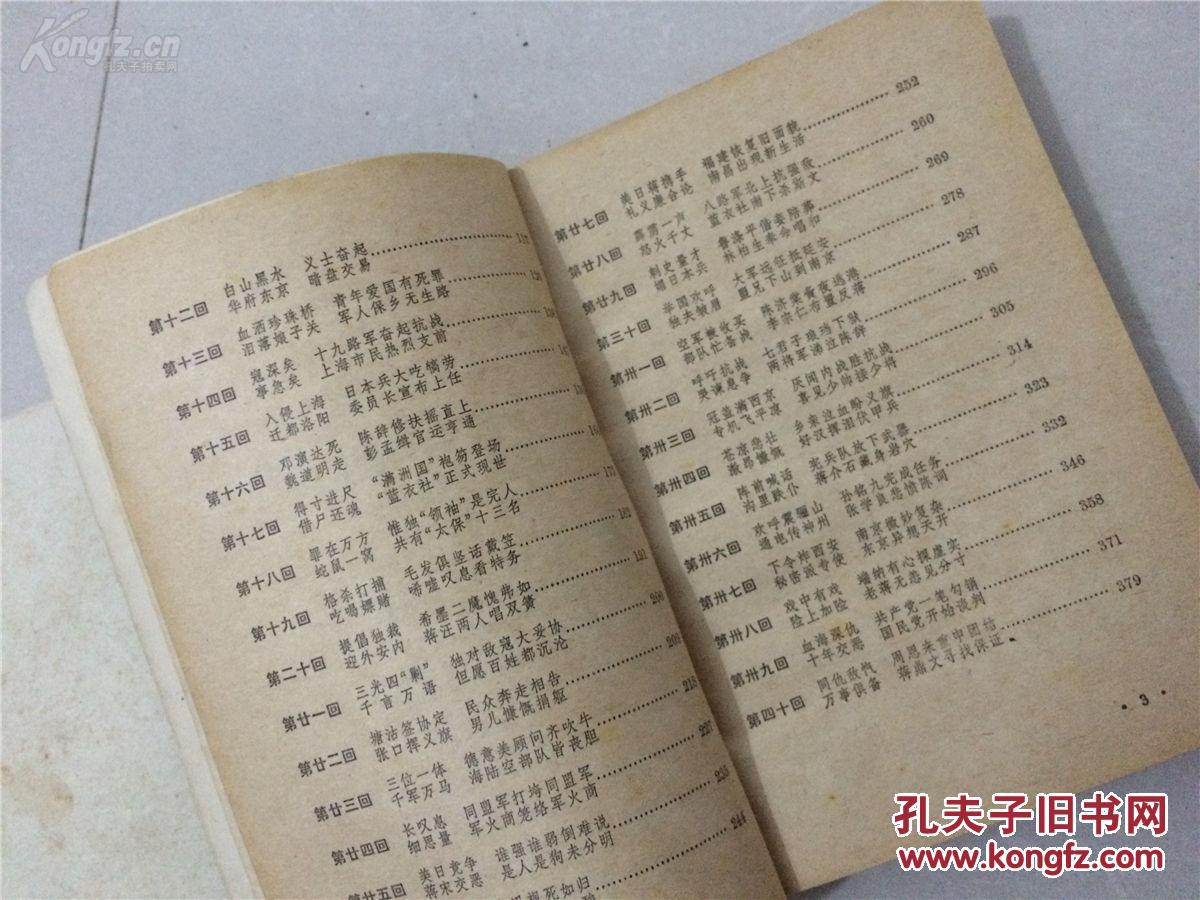 Kongfz.cn
孔夫子拍卖网
第十二回 白山黑水 义士奋起
华府东京 暗盘交易
第十三回 血洒珍珠桥 青年爱国有死罪
泪落娘子关 军人保乡无生路
第十四回 寇深矣 十九路军奋起抗战
事急矣 上海市民热烈支前
第十五回 入侵上海 日本兵大吃犒劳
迁都洛阳 委员长宣布上任
第十六回 邓演达死 陈辞修扶摇直上
魏道明走 彭孟缉官运亨通
第十七回 得寸进尺 “满洲国”袍笏登场
借尸还魂 “蓝衣社”正式现世
第十八回 罪在万方 惟独“领袖”是完人
蛇鼠一窝 共有“太保”十三名
第十九回 格杀打捕 毛发俱坚话戴笠
吃喝嫖赌 唏嘘叹息看特务 191
第二十回 提倡独裁 希墨二魔愧弗如
迎外安内 蒋汪两人唱双簧 200
第廿一回 三光四“剿” 独对敌寇大妥协
千言万语 但愿百姓都沉沦 209
第廿二回 塘沽签协定 民众奔走相告
张口挥义旗 男儿慷慨捐躯 218
第廿三回 三位一体 德意美顾问齐吹牛
千军万马 海陆空部队皆丧胆 227
第廿四回 长叹息 同盟军打垮同盟军
细思量 军火商笼络军火商 235
第廿五回 美日竞争 谁强谁弱倒难说
蒋宋交恶 是人是狗未分明 244
视死如归
第廿七回 美日蒋携手 福建恢复旧面貌 252
礼义廉合论 南昌出现新生活
第廿八回 霹雳一声 八路军北上抗强敌 260
怒火千丈 蓝衣社南下杀斯文
第廿九回 刺史量才 鲁涤平偕妾陪葬 269
媚日本兵 林柏生奉命唱和
第三十回 举国欢呼 大军远征抵延安 278
独夫皱眉 盟兄下山到南京
第卅一回 空军被收买 陈济棠黄夜逃港 287
部队忙备战 李宗仁布置反蒋
第卅二回 呼吁抗战 七君子琅珰下狱 296
哭谏息争 两将军涕泣陈辞
第卅三回 冠盖满西京 厌闻内战胜抗战 305
专机飞平凉 喜见少帅接少将
第卅四回 苍凉悲壮 乡亲泣血盼义旗 314
激昂慷慨 好汉挥泪伏甲兵
第卅五回 阵前喊话 宪兵队放下武器 323
沟里跌仆 蒋介石藏身岩穴
第卅六回 欢呼震骊山 孙铭九完成任务 332
通电传神州 张学良悲愤陈词
第卅七回 下令炸西安 南京微妙复杂 346
秘密派专使 东京异想天开
第卅八回 戏中有戏 端纳有心探虚实 358
险上加险 老蒋无恙见分寸
第卅九回 血海深仇 共产党一笔勾销 371
十年交恶 国民党开始谈判
第四十回 同仇敌忾 周恩来重申团结 379
万事俱备 蒋鼎文寻找保证
· 3 ·
孔夫子旧书网
www.kongfz.com